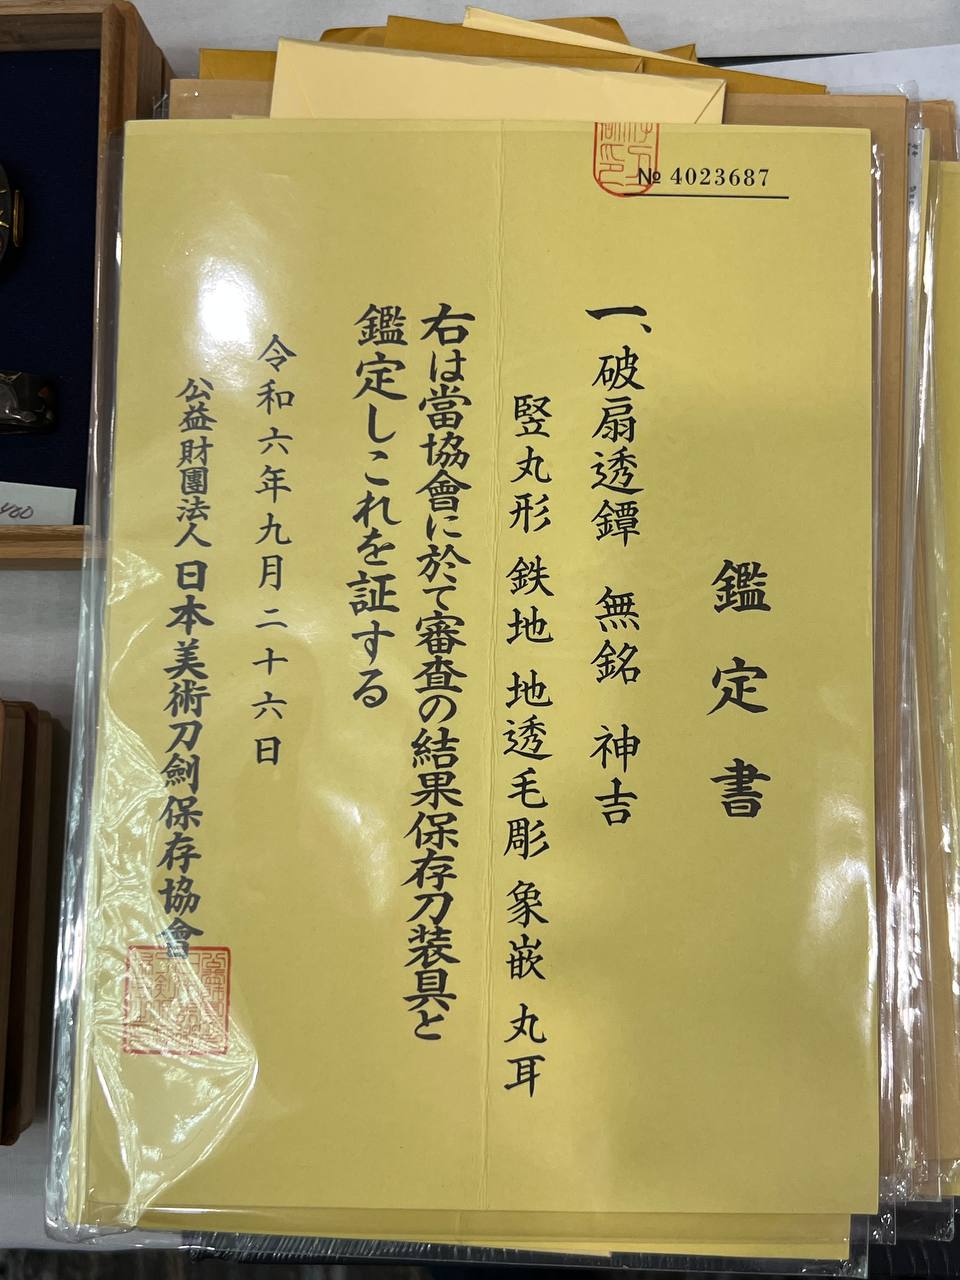 № 4023687
鑑定書
一、破扇透鐔 無銘 神吉
竪丸形 鉄地 地透毛彫 象嵌 丸耳
右は當協會に於て審査の結果保存刀装具と
鑑定しこれを証する
令和六年九月二十六日
公益財團法人 日本美術刀劍保存協會